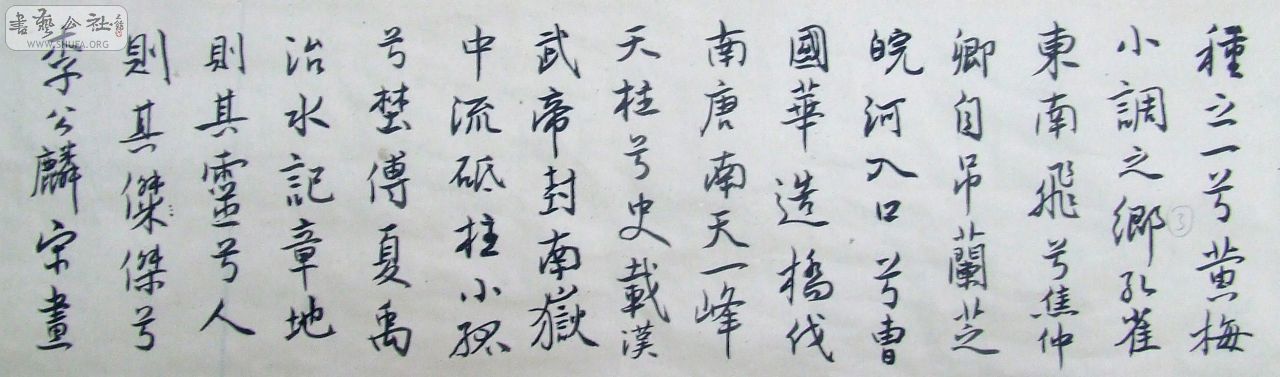 種之一兮黄梅
小調之鄉孔雀
東南飛兮焦仲
卿自吊蘭芝
皖河入口兮曹
國華造橋伐
南唐南天一峰
天柱兮史載漢
武帝封南嶽
中流砥柱小孤
兮埜傳夏禹
治水記章地
則其靈兮人
則其傑傑兮
李公麟宋畫
③
書藝公社
WWW.SHUFA.ORG